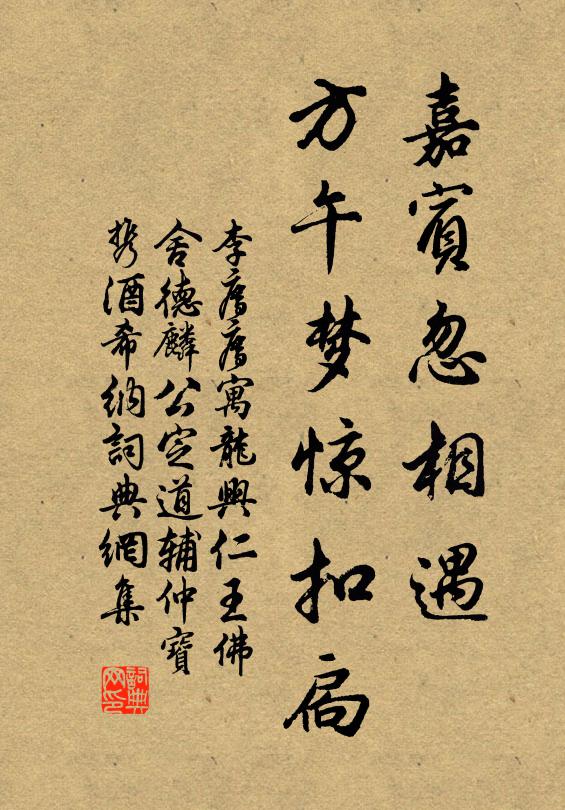 嘉賓忽相遇
方午梦惊扣扃
李廌廌寓龍興仁王佛
舍德麟公定道輔仲寶
携酒希納詞典網集
詞典
网印